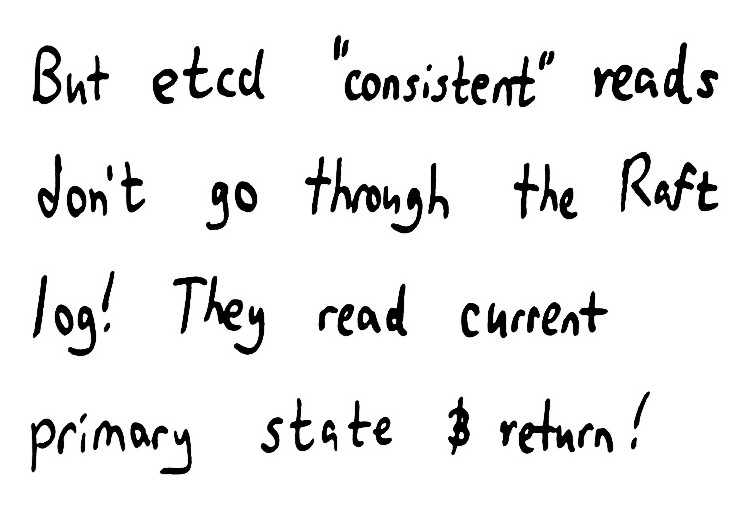 But etcd "consistent" reads
don't go through the Raft
log! They read current
primary state & return!